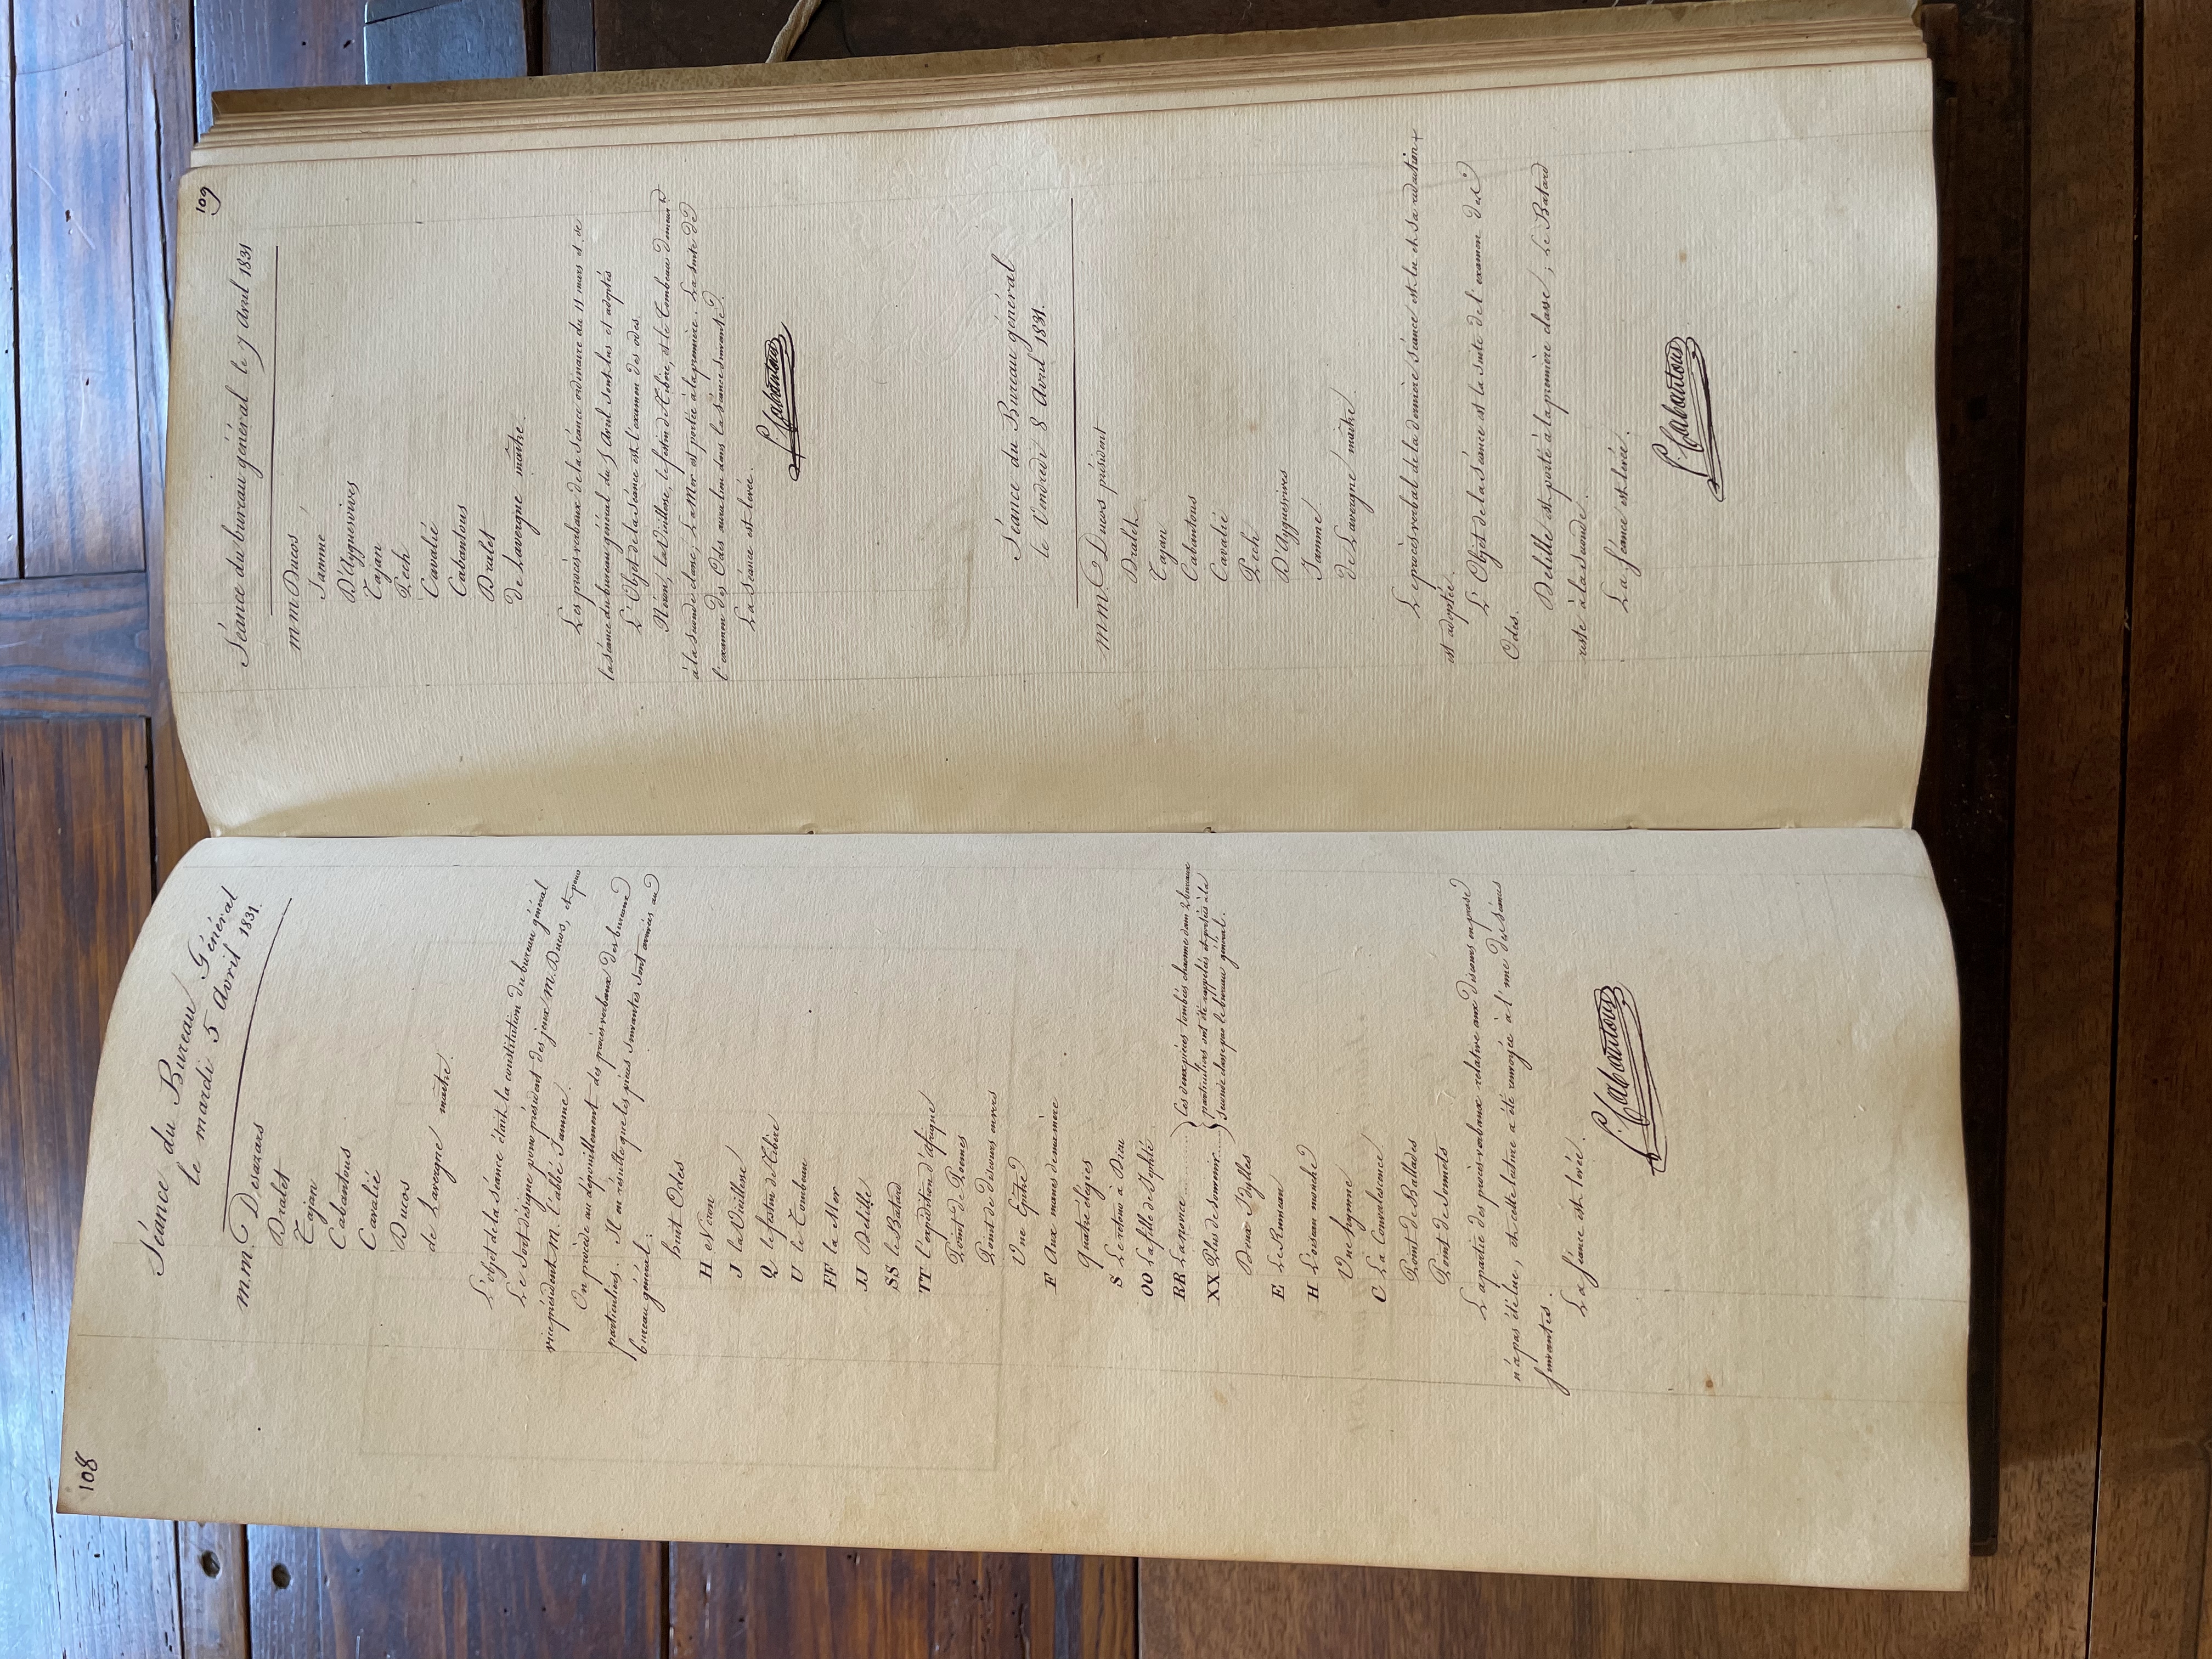 108
Séance du Bureau Général
le mardi 5 avril 1831.
m.m. Desazars
Dralet
Tajan
Cabantous
Cavalié
Ducos
de Lavergne maître.
L'objet de la séance était la constitution du bureau général
Le Sort désigne pour président des jeux m. Ducos, et pour
vice président m. l'abbé Jamme.
On procède au dépouillement des procès verbaux des bureaux
particuliers. Il en résulte que les pièces suivantes sont arrivées au
bureau général :
huit Odes
H Néron
J la Vieillesse
Q le festin de Tibère
U le Tombeau
FF la Mer
JJ Delille
SS le Batard
TT l'expédition d'afrique
Point de Poemes
Point de discours en vers
Une Epitre
F Aux manes de ma mère
Quatre élégies
S Le retour à Dieu
OO La fille de Jephté
RR La novice ........ } Ces deux pièces tombées chacune dans 2 bureaux
XX Plus de Sommeil .... } particuliers ont été rappelées et portées à la
seconde classe par le bureau général.
Deux Idylles
E Le Ruisseau
H L'oiseau mouche
Une hymne
C La Convalescence
Point de Ballades
Point de Sonnets
La partie des procès-verbaux relative aux discours en prose
n'a pas été lue, et cette lecture a été renvoyée à l'une des séances
suivantes.
La Séance est levée.
F. Cabantous
109
Séance du bureau général le 7 Avril 1831
m.m. Ducos,
Jamme
D'Ayguesvives
Tajan
Pech
Cavalié
Cabantous
Dralet
de Lavergne maître.
Les procès-verbaux de la Séance ordinaire du 11 mars et de
la séance du bureau général du 5 Avril sont lus et adoptés
L'Objet de la séance est l'examen des odes.
Néron, la Vieillesse, le festin de Tibère, et le Tombeau demeurent
à la seconde classe; La Mer est portée à la première. La suite de
l'examen des Odes aura lieu dans la séance suivante.
La Séance est levée.
F. Cabantous
Séance du Bureau général
le Vendredi 8 Avril 1831.
m.m. Ducos président
Dralet
Tajan
Cabantous
Cavalié
Pech
D'Ayguesvives
Jamme
de Lavergne maître.
Le procès-verbal de la dernière séance est lu et sa rédaction
est adoptée.
L'Objet de la Séance est la suite de l'examen des
Odes.
Delille est porté à la première classe; Le Batard
reste à la seconde.
La Séance est levée.
F. Cabantous